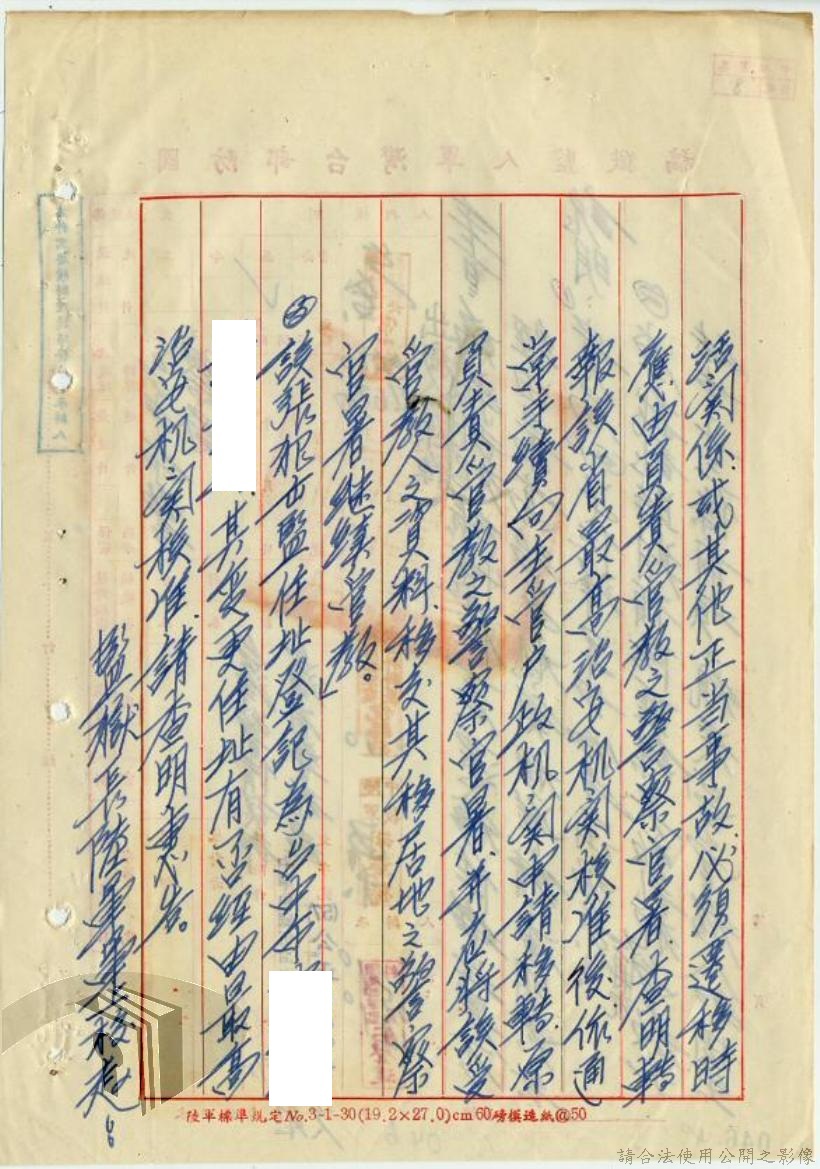 活関係或其他正当事故必須遷移時
應由負責管教之警察官署查明轉
報該省最高治安机関核准後依通
常手續向主管户政机関申請移轉原
負責管教之警察官署并應將該受
管教人之資料移交其移居地之警察
官署继續管教。」
該張根出監住址登記為台中市
其变更住址有否經由最高
治安机関核准請查明惠告。
監獄長陸軍上校
陸軍標準規定No.3-1-30(19.2×27.0)cm60磅模造紙@50
國防部台灣軍人監獄稿
請合法使用公開之影像